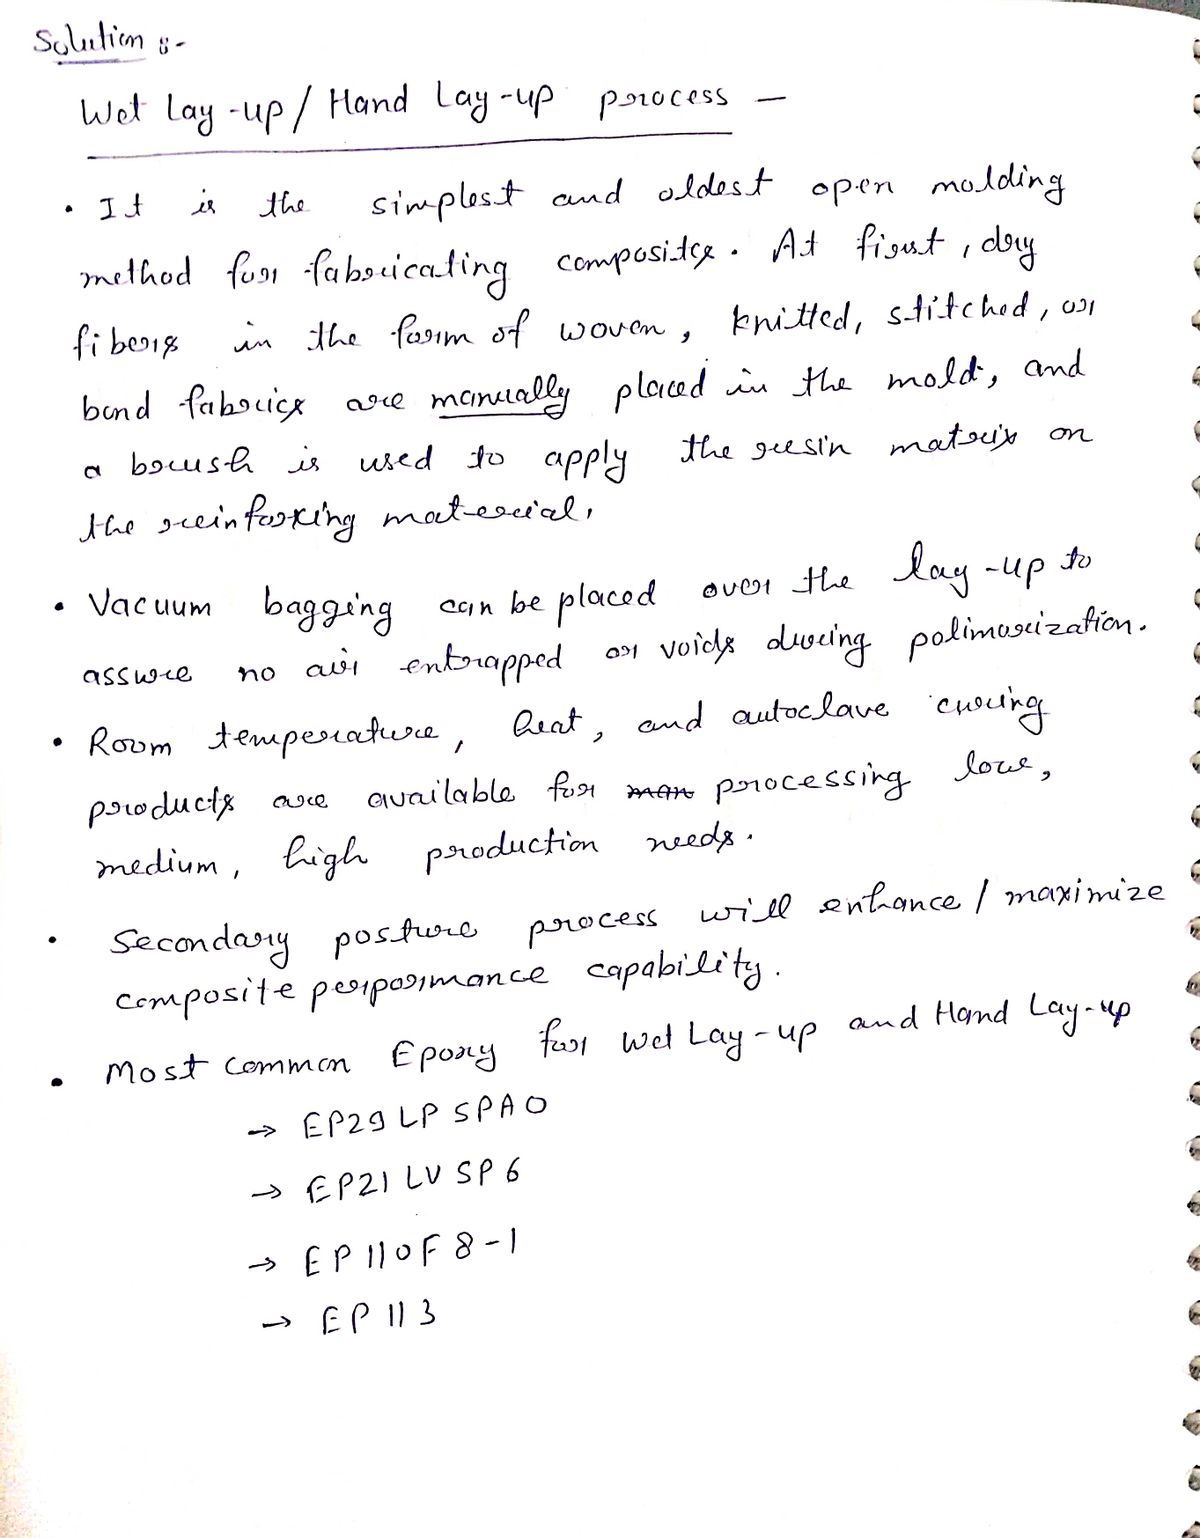 Solution :-
Wet Lay-up / Hand Lay-up process —
• It is the simplest and oldest open molding
method for fabricating composites. At first, dry
fibers in the form of woven, knitted, stitched, or
bond fabrics are manually placed in the mold, and
a brush is used to apply the resin matrix on
the reinforxing material.
• Vacuum bagging can be placed over the lay-up to
assure no air entrapped or voids during polimarization.
• Room temperature, heat, and autoclave curing
products are available for man processing low,
medium, high production needs.
• Secondary posture process will enhance / maximize
composite perpormance capability.
• Most common Epoxy for Wet Lay-up and Hand Lay-up
→ EP29 LP SPAO
→ EP21 LV SP6
→ EP110F8-1
→ EP113